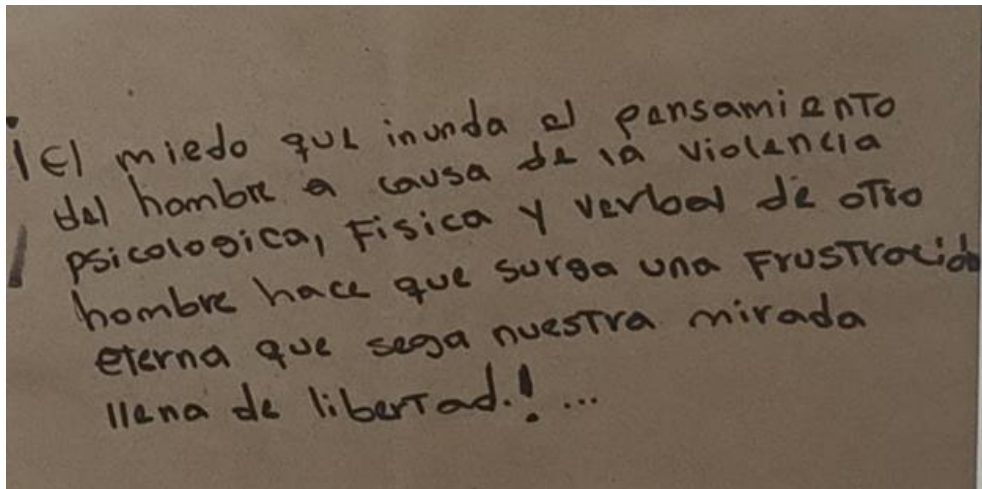 ¡El miedo que inunda el pensamiento
del hombre a causa de la violencia
psicologica, Fisica y verbal de otro
hombre hace que surga una Frustració
eterna que sega nuestra mirada
llena de libertad.! ...